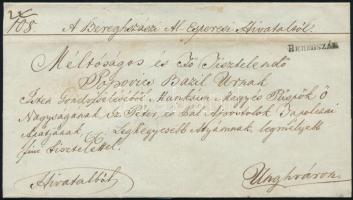 108. A Bereghszászi Al Esperesi Hivataltól.
BEREGSZÁSZ
Méltóságos és Fő Tisztelendő
Popovics Bazil Urnak
Isten Gondviseléséből Munkácsi Megyés Püspök Ő
Nagyságának Sz: Péter és Pál Apostolok Tapolczai
Apátjának, Legkegyesebb Atyámnak legmélyebb
fiui tisztelettel.
Hivatalból
Unghváron.